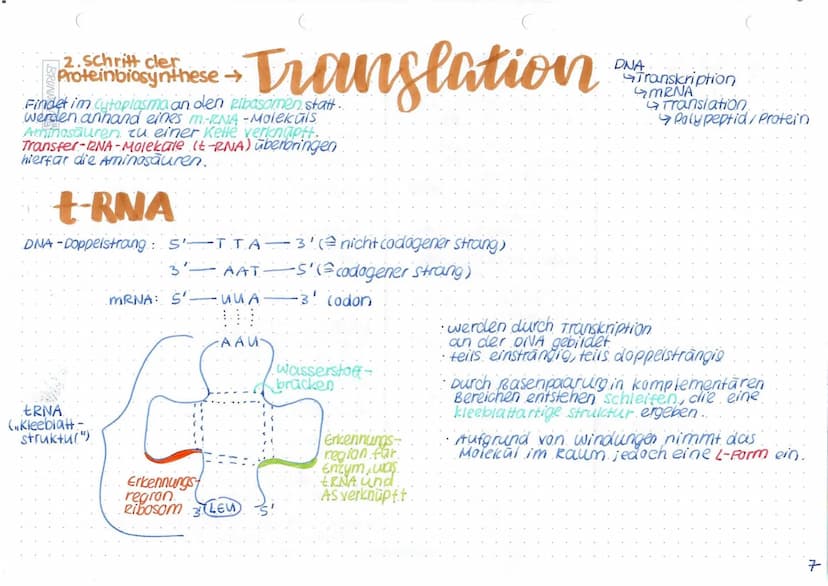 2. Schritt der
Proteinbiosynthese →
Translation
DNA
↳ Transkription
↳ mRNA
↳ Translation
↳ Polypeptid/Protein
Findet im Cytoplasma an den Ribosomen statt.
Werden anhand eines m-RNA-Moleküls
Aminosäuren zu einer Kette verknüpft.
Transfer-RNA-Moleküle (t-RNA) überbringen
hierfür die Aminosäuren.
t-RNA
DNA-Doppelstrang: 5'—TTA—3' (≙ nicht codogener Strang)
3'—AAT—5' (≙ codogener Strang)
mRNA: 5'—UUA—3' Codon
AAU
Wasserstoff-
brücken
tRNA
("Kleeblatt-
struktur")
Erkennungs-
region für
Enzym, was
tRNA und
AS verknüpft
Erkennungs-
region
Ribosom
3' LEU 5'
· werden durch Transkription
an der DNA gebildet
· teils einsträngig, teils doppelsträngig
· Durch Basenpaarung in komplementären
Bereichen entstehen Schleifen, die eine
kleeblattartige Struktur ergeben.
· Aufgrund von Windungen nimmt das
Molekül im Raum jedoch eine L-Form ein.
7